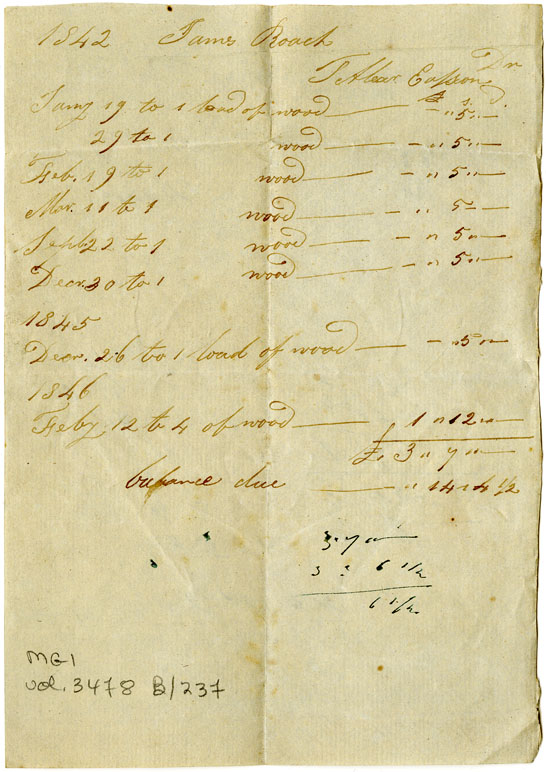 1842 James Roach
To Alexr. Easson Dr
£ s. d.
Jany 19 to 1 load of wood — - " 5 " —
29 to 1 wood — - " 5 " —
Feb. 19 to 1 wood — - " 5 " —
Mar. 11 to 1 wood — - " 5 - —
Sept. 22 to 1 wood — - " 5 " —
Decr. 30 to 1 wood — - " 5 " —
1845
Decr. 26 to 1 load of wood — - " 5 " —
1846
Feby. 12 to 4 of wood — 1 " 12 " —
£. 3 " 7 " —
balance due — " 14 " 4 1/2
3 " 7 " —
3 " 6 1/2
6 1/2
MG1
vol. 3478 B/237